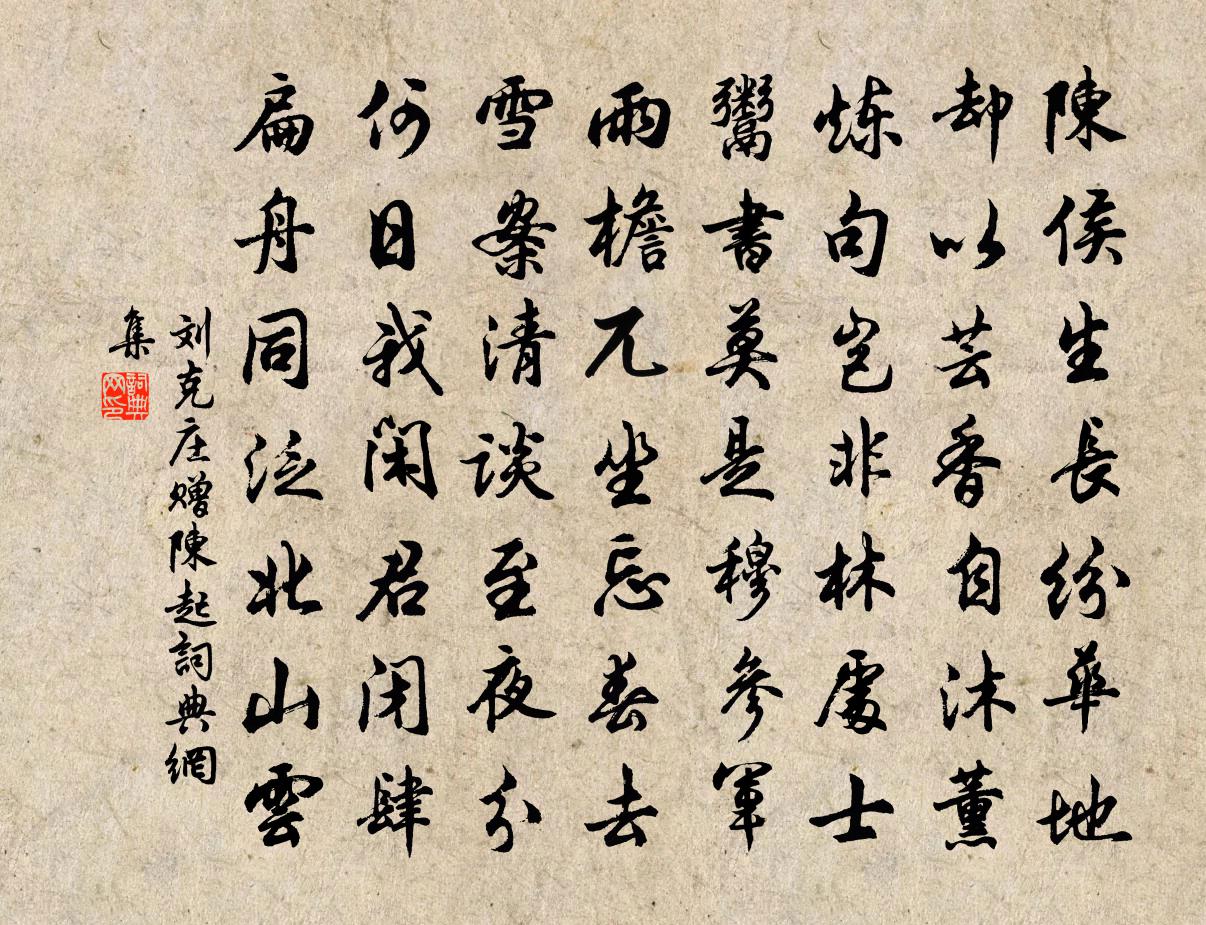 陳侯生長紛華地
却以芸香自沐薰
炼句豈非林處士
鬻書莫是穆參軍
雨檐兀坐忘春去
雪案清談至夜分
何日我閑君閉肆
扁舟同泛北山雲
刘克庄赠陳起詞典網
集
詞典
网印